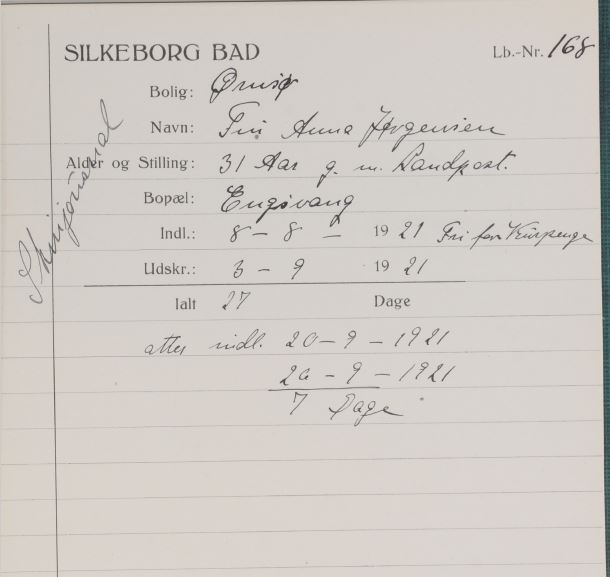 SILKEBORG BAD
Lb.-Nr. 168
Bolig: Ørnsø
Navn: Fru Anna Jørgensen
Alder og Stilling: 31 Aar g. m. Landpost.
Bopæl: Engesvang
Indl.: 8 – 8 – 1921 Fri for Kurpenge
Udskr.: 3 – 9 1921
Ialt 27 Dage
atter indl. 20 – 9 – 1921
26 – 9 – 1921
7 Dage